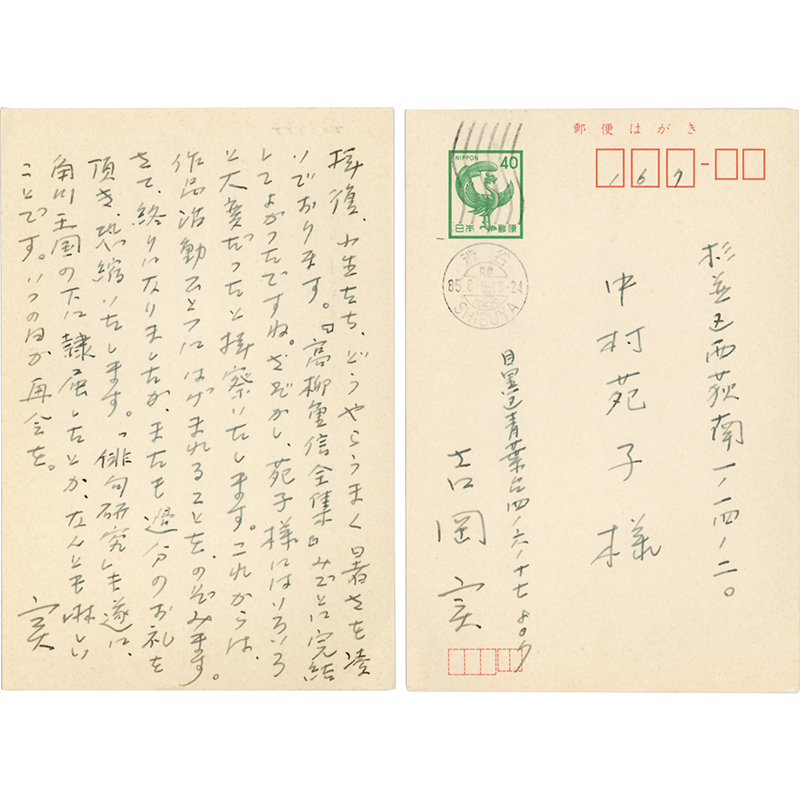 拝復、小生たち、どうやらうまく暑さを凌
いでおります。『高柳重信全集』みごとに完結
してよかったですね。さぞかし、苑子様にはいろいろ
と大変だったと拝察いたします。これからは、
作品活動ひとつにはげまれることを、のぞみます。
さて、終りになりましたが、またも過分のお礼を
頂き、恐縮いたします。「俳句研究」も遂に、
角川王国の下に隷属したとか、なんとも淋しい
ことです。いつの日か再会を。
実
郵便はがき
167
NIPPON 40
日本郵便
渋谷
SHIBUYA
杉並区西荻南一ノ一四ノ二〇
中村苑子様
目黒区青葉台四ノ六ノ十七 807
吉岡実